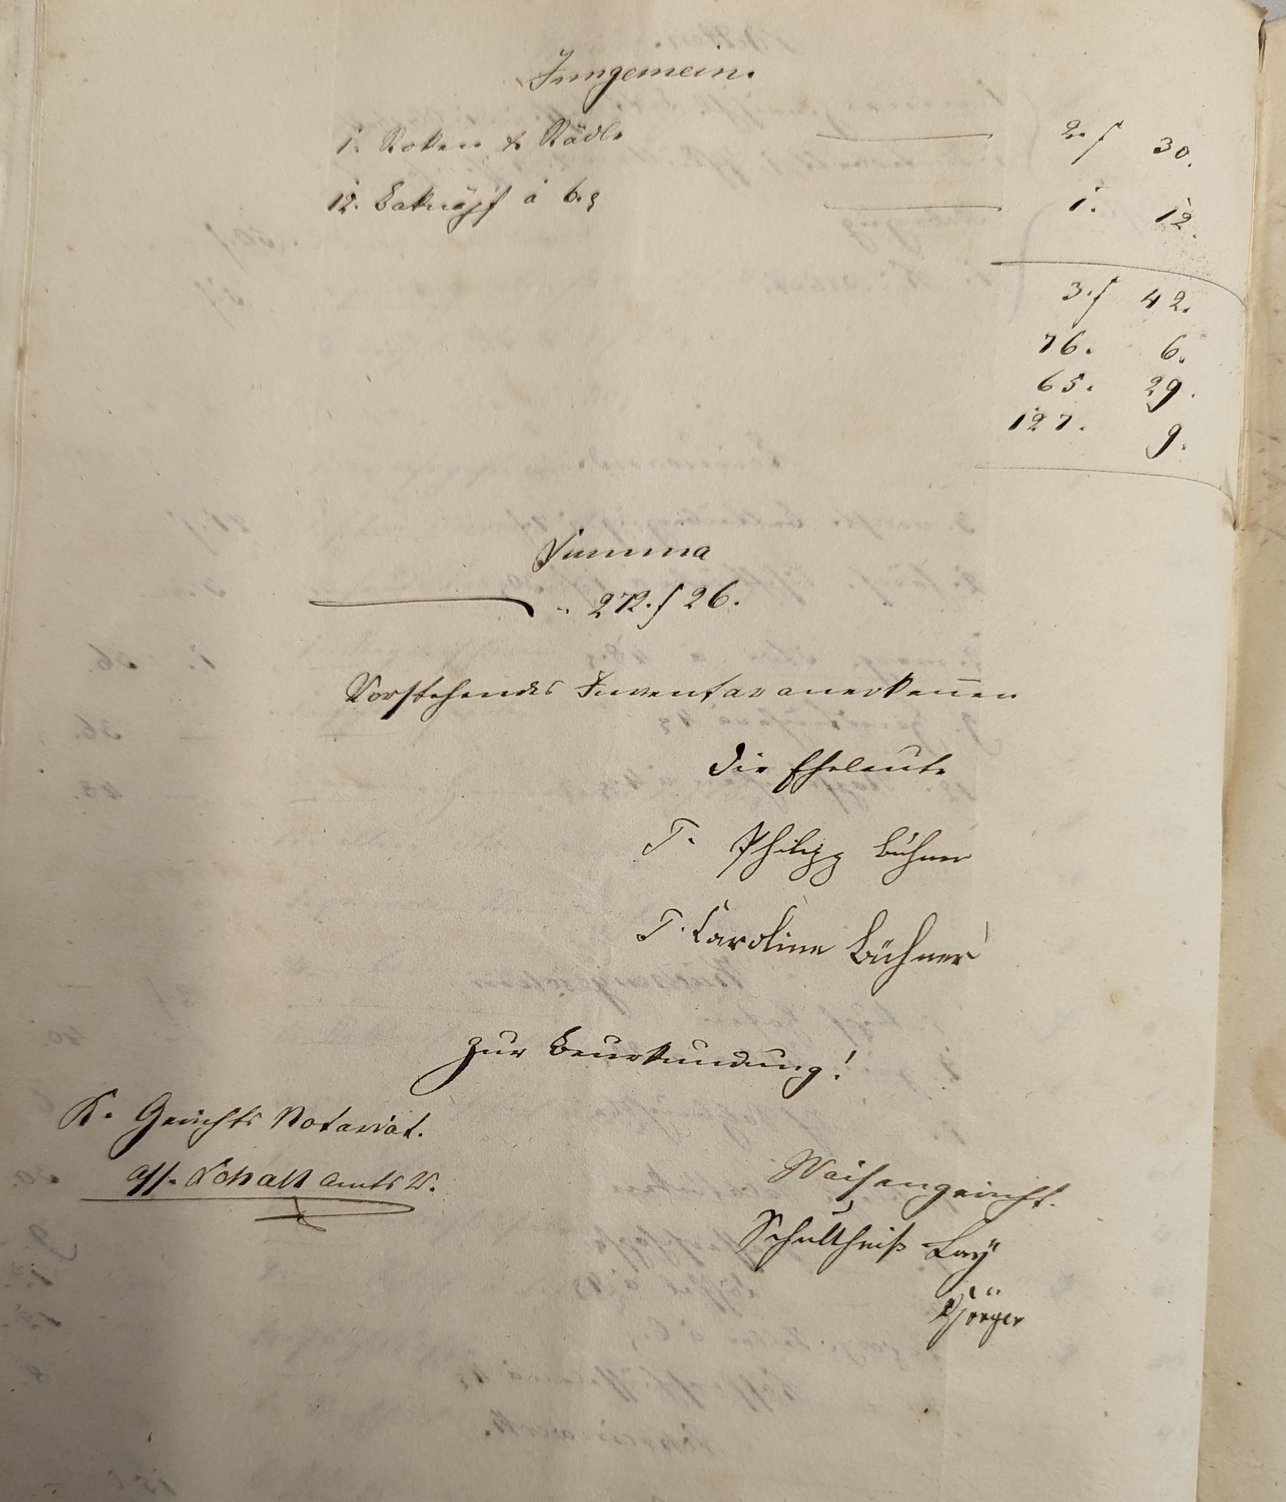 Inngemein.
1. Roken & Rädle 2. f 30.
12. Baknäpf à 6. 1. 12.
3. f 42.
76. 6.
65. 29.
127. 9.
Summa
272. f 26.
Vorstehendes Inventar anerkeñen
die Eheleute
T. Philipp Bühner
T. Caroline Bühner
Zur Beurkundung!
K. Gerichts Notariat.
Ass. Schall Amts V.
Waisengericht.
Schultheiß Lay